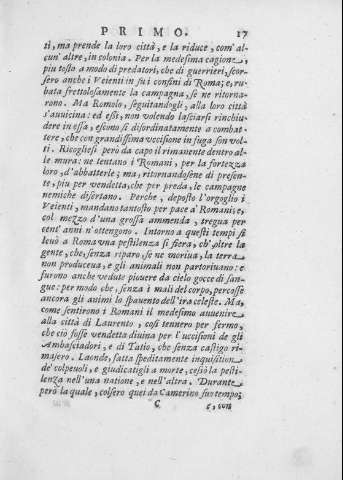 PRIMO. 17
ti, ma prende la loro città, e la riduce, com' al-
cun' altre, in colonia. Per la medesima cagione,
piu tosto a modo di predatori, che di guerrieri, scor-
sero anche i Veienti in su i confini di Roma; e, ru-
bata frettolosamente la campagna, se ne ritorna-
rono. Ma Romolo, seguitandogli, alla loro città
s'auuicina: ed essi, non volendo lasciarsi rinchiu-
dere in essa, escono si disordinatamente a combat-
tere, che con grandissima vccisione in fuga son vol-
ti. Ricogliesi però da capo il rimanente dentro al-
le mura: ne tentano i Romani, per la fortezza
loro, d'abbatterle; ma, ritornandosene di presen-
te, piu per vendetta, che per preda, le campagne
nemiche disertano. Perche, deposto l'orgoglio i
Veienti, mandano tantosto per pace a' Romani; e,
col mezzo d'una grossa ammenda, tregua per
cent' anni n'ottengono. Intorno a questi tempi si
leuò a Roma vna pestilenza sì fiera, ch', oltre la
gente, che, senza riparo, se ne moriua, la terra
non produceua, e gli animali non partoriuano: e
furono anche vedute piouere da cielo gocce di san-
gue: per modo che, senza i mali del corpo, percosse
ancora gli animi lo spauento dell'ira celeste. Ma,
come sentirono i Romani il medesimo auuenire
alla città di Laurento, così tennero per fermo,
che ciò fosse vendetta diuina per l'uccisioni de gli
Ambasciadori, e di Tatio, che senza castigo ri-
masero. Laonde, fatta speditamente inquisition
de' colpeuoli, e giudicatigli a morte, cessò la pesti-
lenza nell'una natione, e nell'altra. Durante
però la quale, colsero quei da Camerino suo tempo;
C